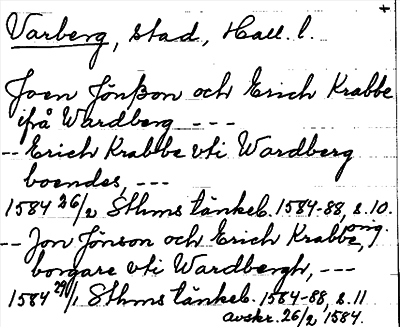 Varberg, stad, Hall. l.
Joen Jönßon och Erich Krabbe
ifrå Wardberg ---
-- Erich Krabbe vti Wardberg
boendes, ---
1584 26/2 Sthms tänkeb. 1584-88, s. 10.
orig.
-- Jon Jönson och Erich Krabbe,
borgare vti Wardbergh, ---
1584 29/1 Sthms tänkeb. 1584-88, s. 11
avskr. 26/2 1584.